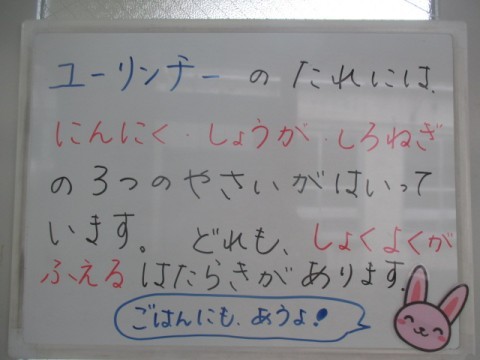 ユーリンチーのたれには、
にんにく・しょうが・しろねぎ
の3つのやさいがはいって
います。どれも、しょくよくが
ふえるはたらきがあります。
ごはんにも、あうよ!